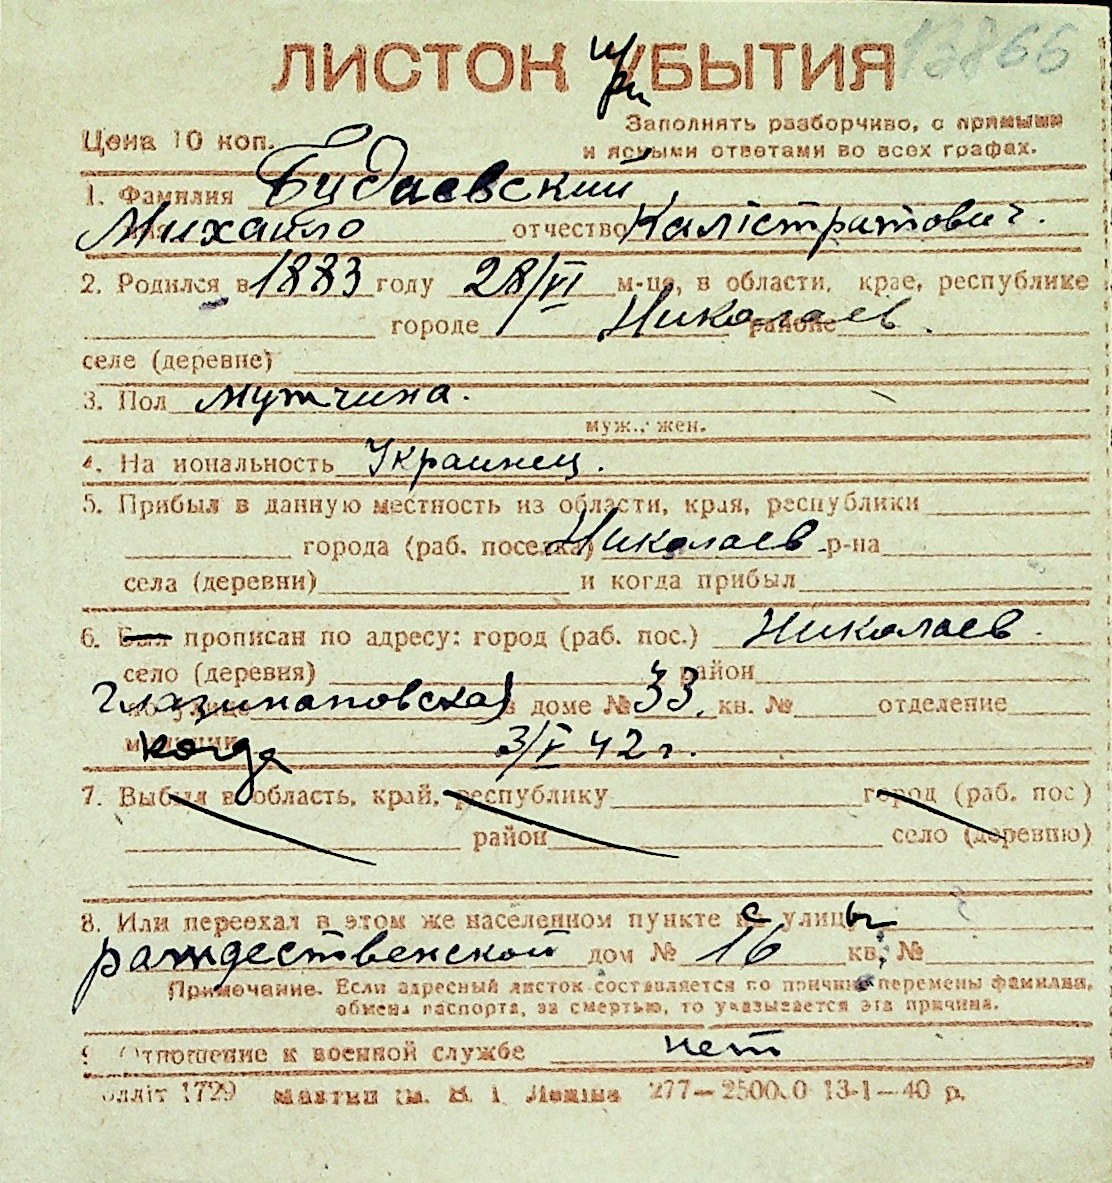 13866
ЛИСТОК при УБЫТИЯ
Цена 10 коп.
Заполнять разборчиво, с прямыми
и ясными ответами во всех графах.
1. Фамилия Будаевский
Михайло отчество Калістратович.
2. Родился в 1883 году 28/VI м-ца, в области, крае, республике
городе Николаев. районе
селе (деревне)
3. Пол мужчина.
муж., жен.
4. На иональность Украинец.
5. Прибыл в данную местность из области, края, республики
города (раб. поселка) Николаев р-на
села (деревни) и когда прибыл
6. Был прописан по адресу: город (раб. пос.) Николаев.
село (деревня) район
по улице в доме № 33 кв. № отделение
милиции когда 3/V 42 г.
7. Выбыл в область, край, республику город (раб. пос)
район село (деревню)
8. Или переехал в этом же населенном пункте с улицы
рождественской дом № 16 кв. №
Примечание. Если адресный листок составляется по причине перемены фамилии,
обмена паспорта, за смертью, то указывается эта причина.
9 Отношение к военной службе нет
олліт 1729 277—25000 13-1—40 р.